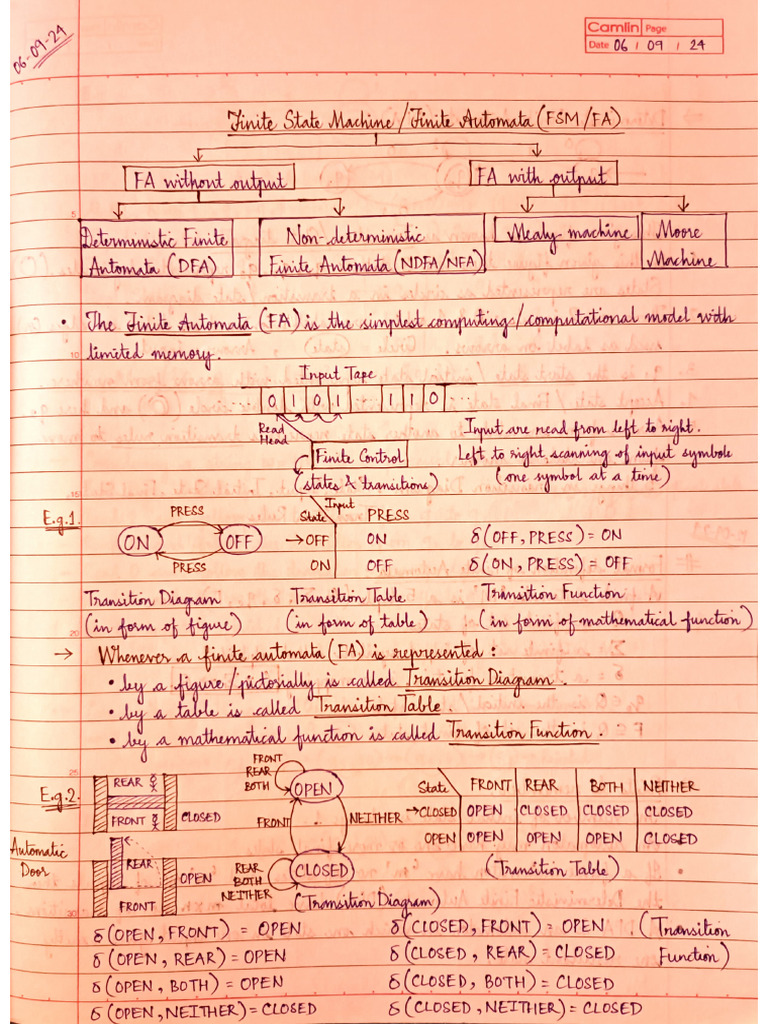 06-09-24
Camlin Page
Date 06 / 09 / 24
Finite State Machine / Finite Automata (FSM/FA)
FA without output
FA with output
Deterministic Finite
Automata (DFA)
Non-deterministic
Finite Automata (NDFA/NFA)
Mealy machine
Moore
Machine
• The Finite Automata (FA) is the simplest computing/computational model with
limited memory.
Input Tape
0 1 0 1 1 1 0
Read
Head
Input are read from left to right.
Finite Control
Left to right scanning of input symbols
(states & transitions)
(one symbol at a time)
E.g.1.
PRESS
ON OFF
PRESS
Input
State PRESS
→OFF ON
ON OFF
δ(OFF, PRESS) = ON
δ(ON, PRESS) = OFF
Transition Diagram Transition Table Transition Function
(in form of figure) (in form of table) (in form of mathematical function)
→ Whenever a finite automata (FA) is represented :
• by a figure/pictorially is called Transition Diagram.
• by a table is called Transition Table.
• by a mathematical function is called Transition Function.
E.g.2.
REAR
FRONT
CLOSED
Automatic
Door
REAR
OPEN
FRONT
FRONT
REAR
BOTH
OPEN
FRONT
NEITHER
REAR
BOTH
NEITHER
CLOSED
(Transition Diagram)
State FRONT REAR BOTH NEITHER
→CLOSED OPEN CLOSED CLOSED CLOSED
OPEN OPEN OPEN OPEN CLOSED
(Transition Table)
δ(OPEN, FRONT) = OPEN δ(CLOSED, FRONT) = OPEN (Transition
δ(OPEN, REAR) = OPEN δ(CLOSED, REAR) = CLOSED Function)
δ(OPEN, BOTH) = OPEN δ(CLOSED, BOTH) = CLOSED
δ(OPEN, NEITHER) = CLOSED δ(CLOSED, NEITHER) = CLOSED